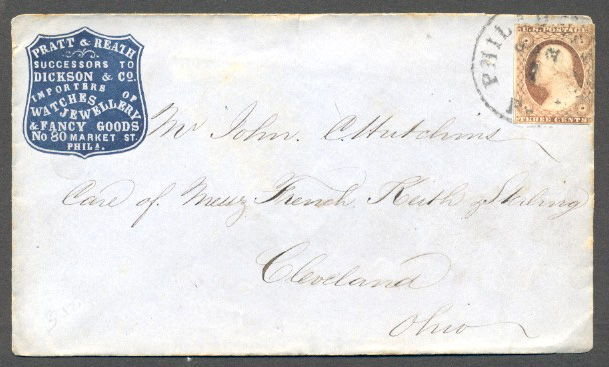 PRATT & REATH
SUCCESSORS TO
DICKSON & CO.
IMPORTERS OF
WATCHES,
JEWELLERY
& FANCY GOODS
No 80 MARKET ST.
PHILA.
U.S. POSTAGE
THREE CENTS
PHILA
Mr John. C. Hutchins
Care of. Messrs French. Keith & Sterling
Cleveland
Ohio